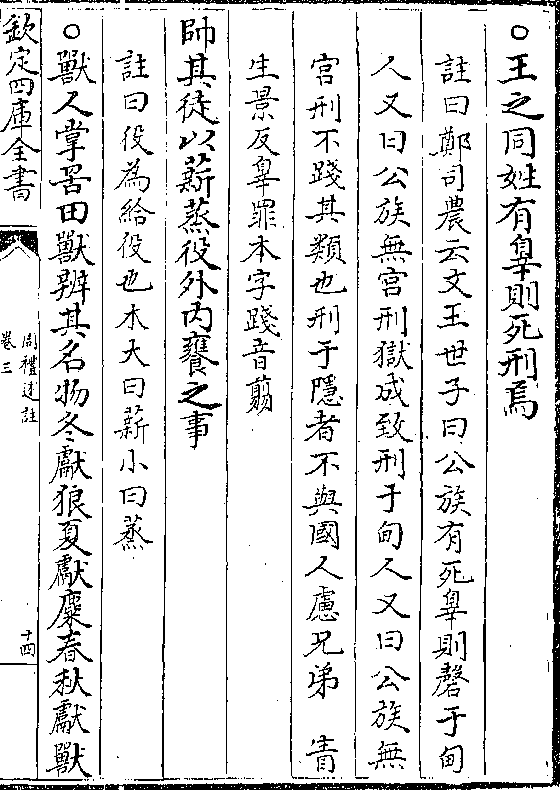 ○王之同姓有辠則死刑焉
註曰鄭司農云文王世子曰公族有死辠則磬于甸
人又曰公族無宫刑獄成致刑于甸人又曰公族無
宫刑不踐其類也刑于隱者不與國人慮兄弟 眚
生景反辠罪本字踐音翦
帥其徒以薪蒸役外内饔之事
註曰役為給役也木大曰薪小曰蒸
○獸人掌罟田獸辨其名物冬獻狼夏獻麋春秋獻獸
欽定四庫全書
周禮述註
卷三
十四